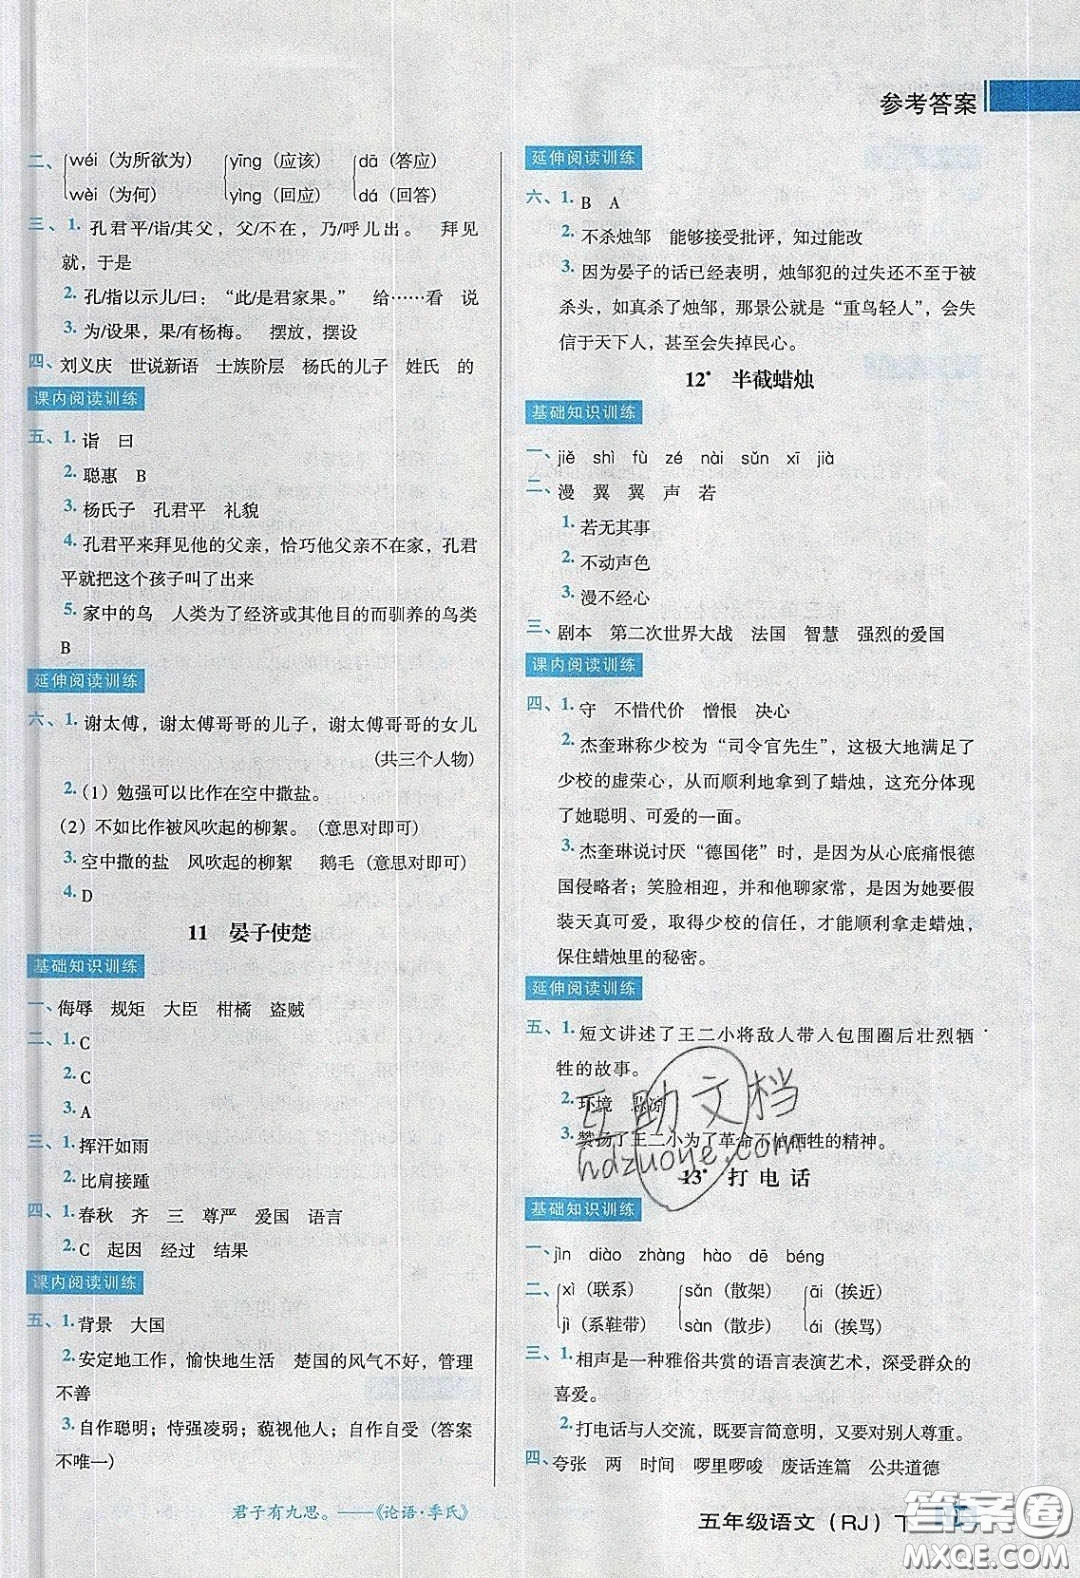 参考答案
二、wéi（为所欲为） yīng（应该） dā（答应）
wèi（为何） yìng（回应） dá（回答）
三、1. 孔君平/诣/其父，父/不在，乃/呼儿出。 拜见
就，于是
2. 孔/指以示儿/曰：“此/是君家果。” 给……看 说
3. 为/设果，果/有杨梅。 摆放，摆设
四、刘义庆 世说新语 士族阶层 杨氏的儿子 姓氏 的
课内阅读训练
五、1. 诣 曰
2. 聪惠 B
3. 杨氏子 孔君平 礼貌
4. 孔君平来拜见他的父亲，恰巧他父亲不在家，孔君
平就把这个孩子叫了出来
5. 家中的鸟 人类为了经济或其他目的而驯养的鸟类
B
延伸阅读训练
六、1. 谢太傅，谢太傅哥哥的儿子，谢太傅哥哥的女儿
（共三个人物）
2.（1）勉强可以比作在空中撒盐。
（2）不如比作被风吹起的柳絮。（意思对即可）
3. 空中撒的盐 风吹起的柳絮 鹅毛（意思对即可）
4. D
11 晏子使楚
基础知识训练
一、侮辱 规矩 大臣 柑橘 盗贼
二、1. C
2. C
3. A
三、1. 挥汗如雨
2. 比肩接踵
四、1. 春秋 齐 三 尊严 爱国 语言
2. C 起因 经过 结果
课内阅读训练
五、1. 背景 大国
2. 安定地工作，愉快地生活 楚国的风气不好，管理
不善
3. 自作聪明；恃强凌弱；藐视他人；自作自受（答案
不唯一）
君子有九思。——《论语·季氏》
延伸阅读训练
六、1. B A
2. 不杀烛邹 能够接受批评，知过能改
3. 因为晏子的话已经表明，烛邹犯的过失还不至于被
杀头，如真杀了烛邹，那景公就是“重鸟轻人”，会失
信于天下人，甚至会失掉民心。
12* 半截蜡烛
基础知识训练
一、jiě shì fù zé nài sǔn xī jià
二、漫 翼 翼 声 若
1. 若无其事
2. 不动声色
3. 漫不经心
三、剧本 第二次世界大战 法国 智慧 强烈的爱国
课内阅读训练
四、1. 守 不惜代价 憎恨 决心
2. 杰奎琳称少校为“司令官先生”，这极大地满足了
少校的虚荣心，从而顺利地拿到了蜡烛，这充分体现
了她聪明、可爱的一面。
3. 杰奎琳说讨厌“德国佬”时，是因为从心底痛恨德
国侵略者；笑脸相迎，并和他聊家常，是因为她要假
装天真可爱，取得少校的信任，才能顺利拿走蜡烛，
保住蜡烛里的秘密。
延伸阅读训练
五、1. 短文讲述了王二小将敌人带入包围圈后壮烈牺
牲的故事。
2. 环境
3. 赞扬了王二小为了革命不怕牺牲的精神。
互助文档
hdzuoye.com
13* 打电话
基础知识训练
一、jìn diào zhàng hào dē béng
二、xì（联系） sǎn（散架） āi（挨近）
jì（系鞋带） sàn（散步） ái（挨骂）
三、1. 相声是一种雅俗共赏的语言表演艺术，深受群众的
喜爱。
2. 打电话与人交流，既要言简意明，又要对别人尊重。
四、夸张 两 时间 啰里啰唆 废话连篇 公共道德
五年级语文（RJ）下
答案圈
MXQE.COM